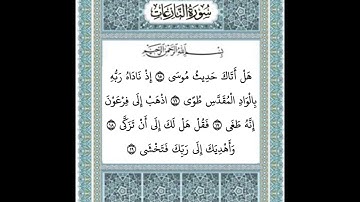 سورة النازعات
بسم الله الرحمن الرحيم
هَلْ أَتَاكَ حَدِيثُ مُوسَى ١٥ إِذْ نَادَاهُ رَبُّهُ
بِالْوَادِ الْمُقَدَّسِ طُوًى ١٦ اذْهَبْ إِلَى فِرْعَوْنَ
إِنَّهُ طَغَى ١٧ فَقُلْ هَلْ لَكَ إِلَى أَنْ تَزَكَّى ١٨
وَأَهْدِيَكَ إِلَى رَبِّكَ فَتَخْشَى ١٩